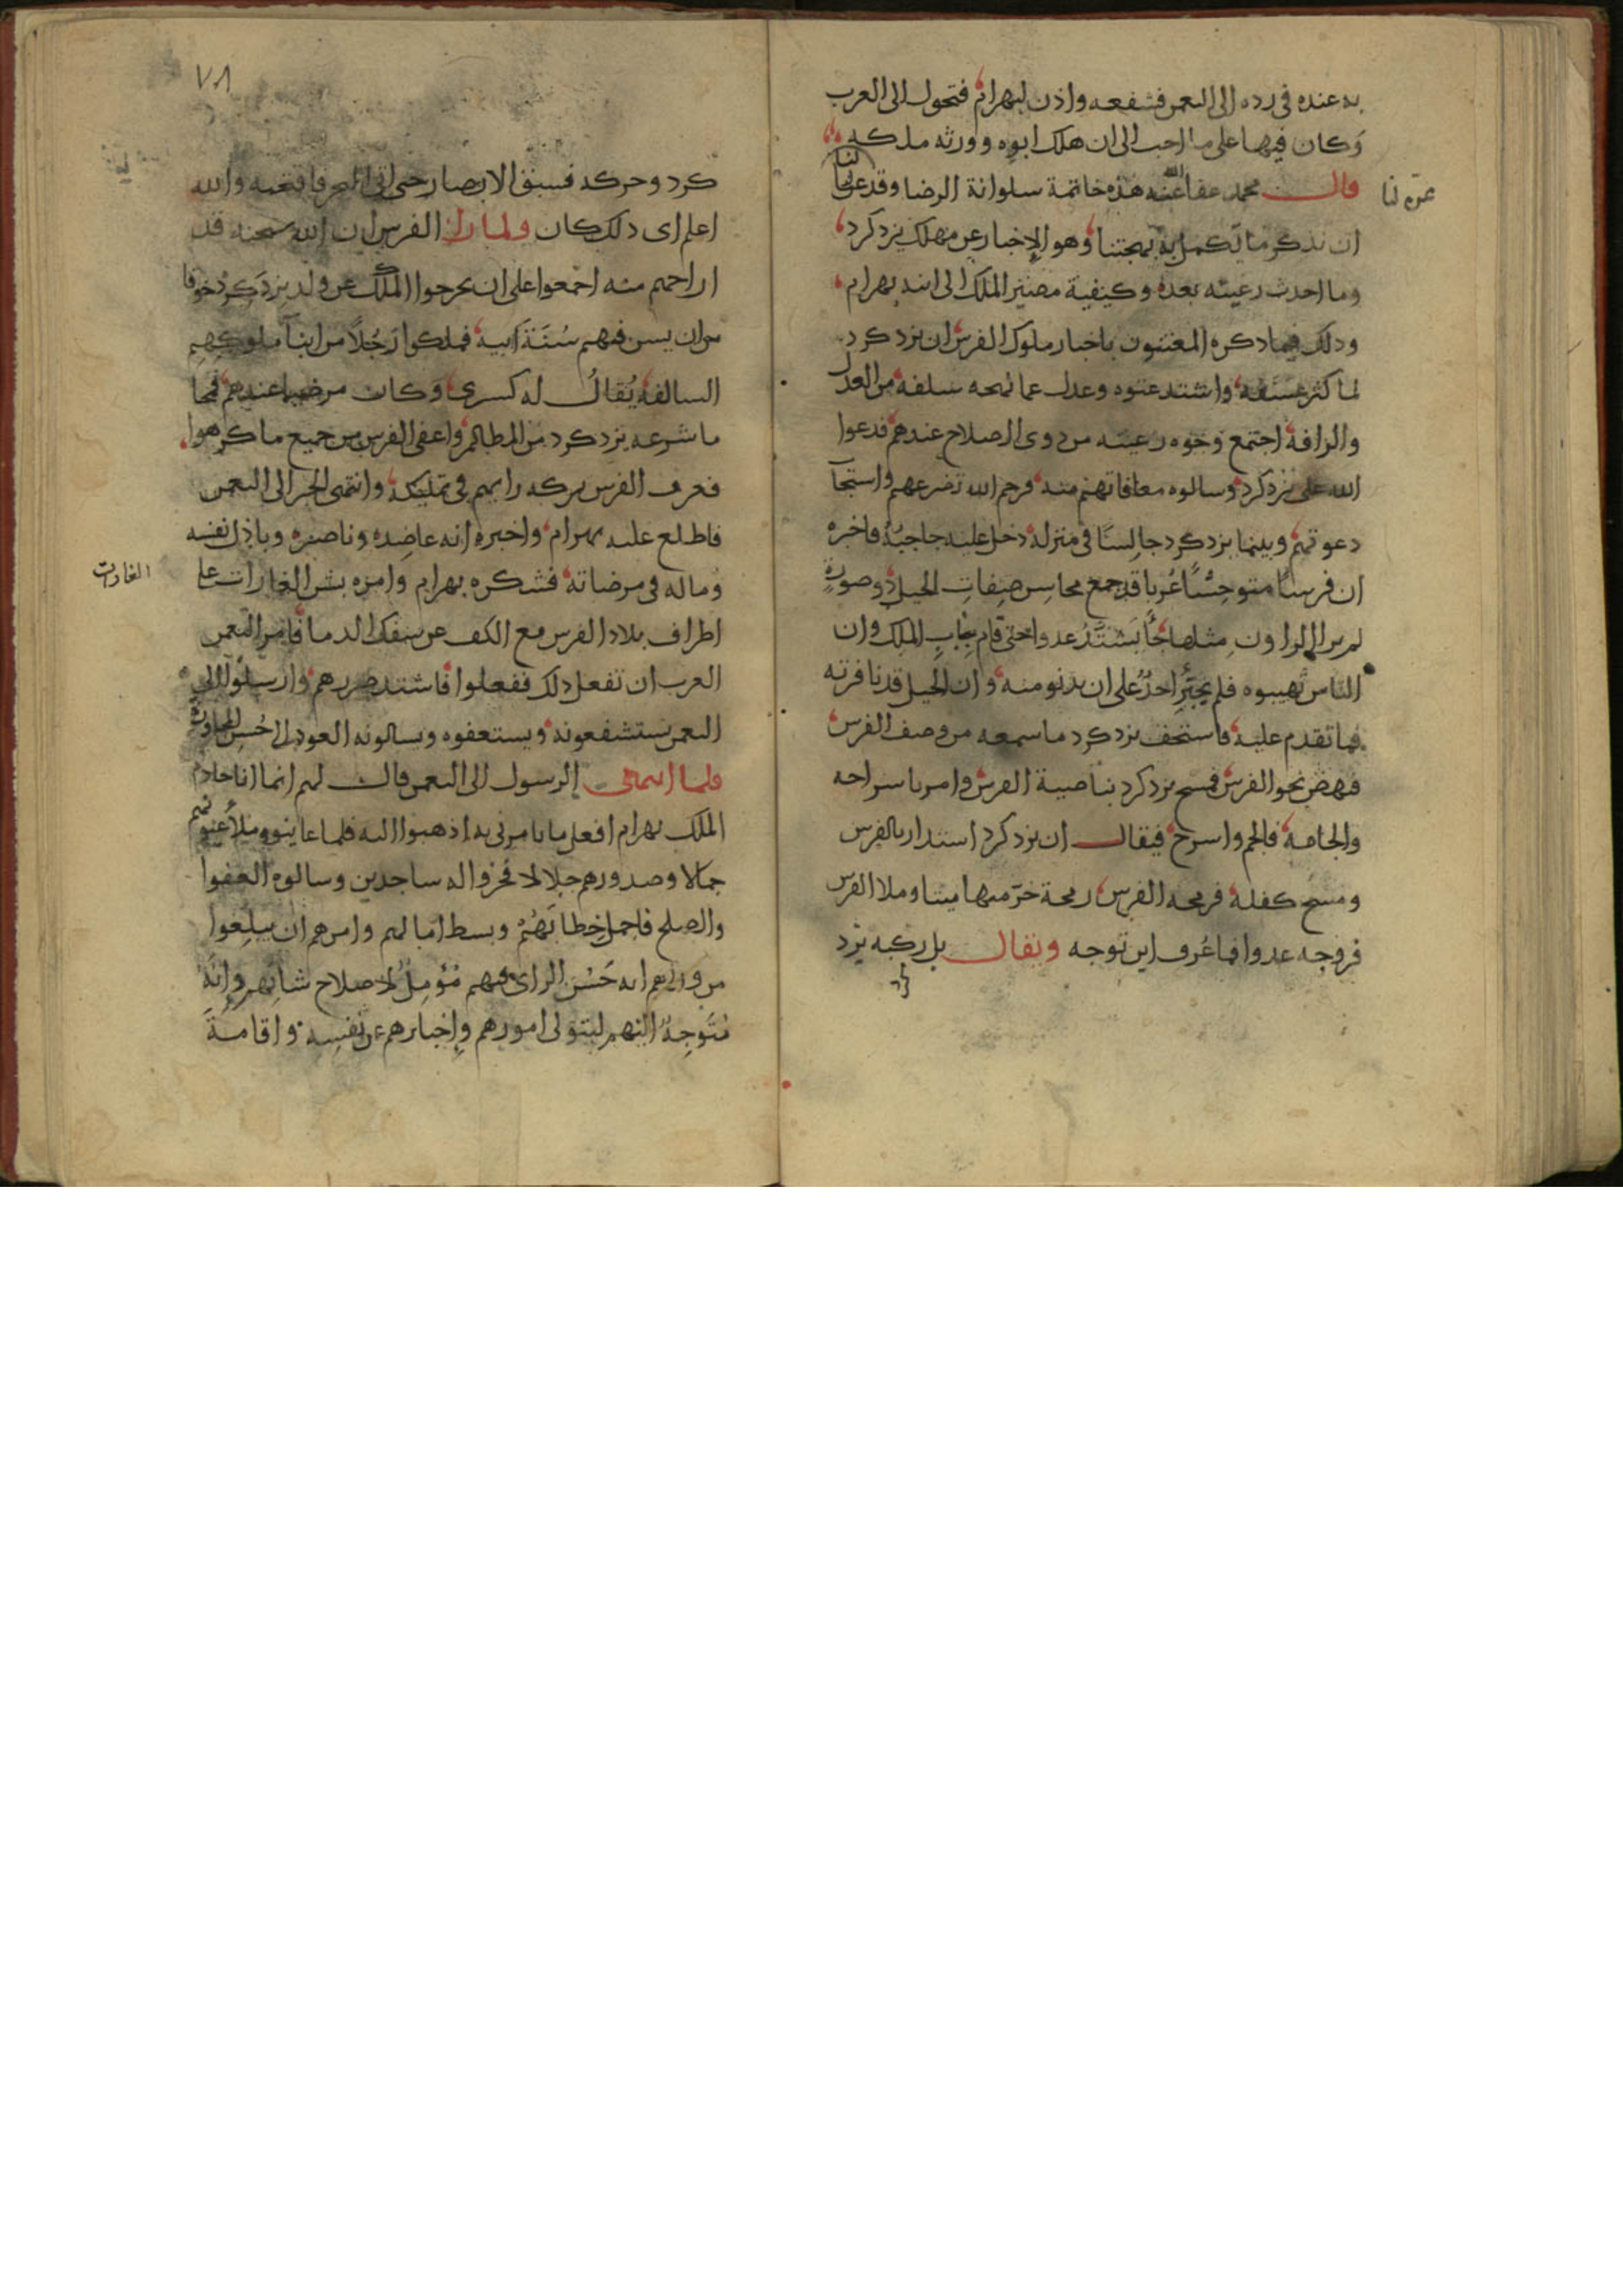 به عنده في رده الى النعمن فشفعه واذن لبهرام فتحول الى العرب
وكان فيها على ما احب الى ان هلك ابوه وورثه ملكه
قال محمد عفا الله عنه هذه خاتمة سلوانة الرضا وقد عن لنا
عن لنا
ان نذكر ما تكمل به بهجتها وهو الاخبار عن مهلك يزدكرد
وما احدث رعيته بعده وكيفية مصير الملك الى ابنه بهرام
وذلك فيما ذكره المعتنون باخبار ملوك الفرس ان يزدكرد
لما كثر عسفه واشتد عتوه وعدل عما نهجه سلفه من العدل
والرافة اجتمع وجوه رعيته من ذوي الصلاح عندهم فدعوا
الله على يزدكرد وسالوه معافاتهم منه فرحم الله تضرعهم واستجاب
دعوتهم وبينما يزدكرد جالسا في منزله دخل عليه حاجبه فاخبره
ان فرسا متوحشا عربا قد جمع محاسن صفات الخيل وصورة
لم ير الراون مثلها جا يشتد عدوا حتى قام بباب الملك وان
الناس تهيبوه فلم يجتر احد على ان يدنو منه وان الخيل قد نافرته
فما تقدم عليه فاستخف يزدكرد ما سمعه من وصف الفرس
فنهض نحو الفرس فمسح يزدكرد بناصية الفرس وامر باسراجه
والجامه فالجم واسرج فيقال ان يزدكرد استدار بالفرس
ومسح كفله فرمحه الفرس رمحة خر منها ميتا وملا الفرس
فروجه عدوا فما عرف اين توجه ويقال بل ركبه يزد
كرد
٧٨
كرد وحركه فسبق الابصار حتى اتى البحر فاقتحمه والله
اعلم اي ذلك كان ولما راى الفرس ان الله سبحنه قد
اراحهم منه اجمعوا على ان يخرجوا الملك عن ولد يزدكرد خوفا
من ان يسن فيهم سنة ابيه فملكوا رجلا من ابنآ ملوكهم
السالفة يقال له كسرى وكان مرضيا عندهم فمحا
ما شرعه يزدكرد من المظالم واعفى الفرس من جميع ما كرهوا
فعرف الفرس بركه رايهم في تمليكه وانتهى الخبر الى النعمن
فاطلع عليه بهرام واخبره انه عاضده وناصره وباذل نفسه
وماله في مرضاته فشكره بهرام وامره بشن الغارات على
الغارات
اطراف بلاد الفرس مع الكف عن سفك الدما فامر النعمن
العرب ان تفعل ذلك ففعلوا فاشتد ضررهم وارسلوا الى
النعمن يستشفعونه ويستعفوه ويسالونه العود الى حسن المجاورة
فلما انتهى الرسول الى النعمن قال لهم انما انا خادم
الملك بهرام افعل ما يامرني به اذهبوا اليه فلما عاينوه ملأ عيونهم
جمالا وصدورهم جلالا فخروا له ساجدين وسالوه العفوا
والصلح فاجمل خطابهم وبسط امالهم وامرهم ان يبلغوا
من ورايهم انه حسن الراي فيهم مؤمل لاصلاح شانهم وانه
متوجه اليهم ليتولى امورهم واخبارهم عن نفسه واقامة